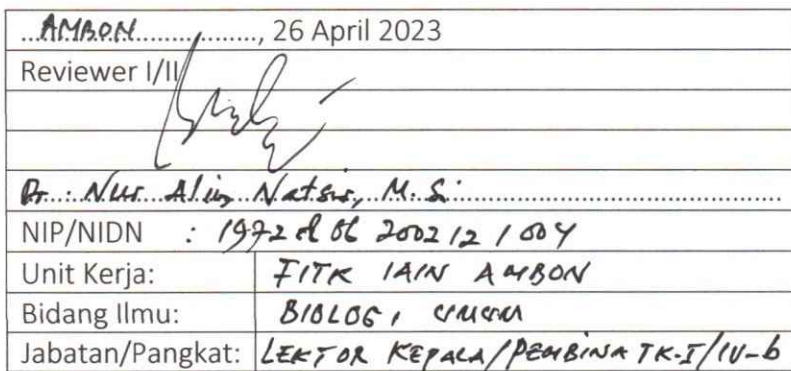 AMBON, 26 April 2023
Reviewer I/II
Dr. Nur Alim Natsir, M.Si
NIP/NIDN : 2002 12 1 004
Unit Kerja: FITK IAIN AMBON
Bidang Ilmu: BIOLOGI UMUM
Jabatan/Pangkat: LEKTOR KEPALA/PEMBINA TK-I/IV-b